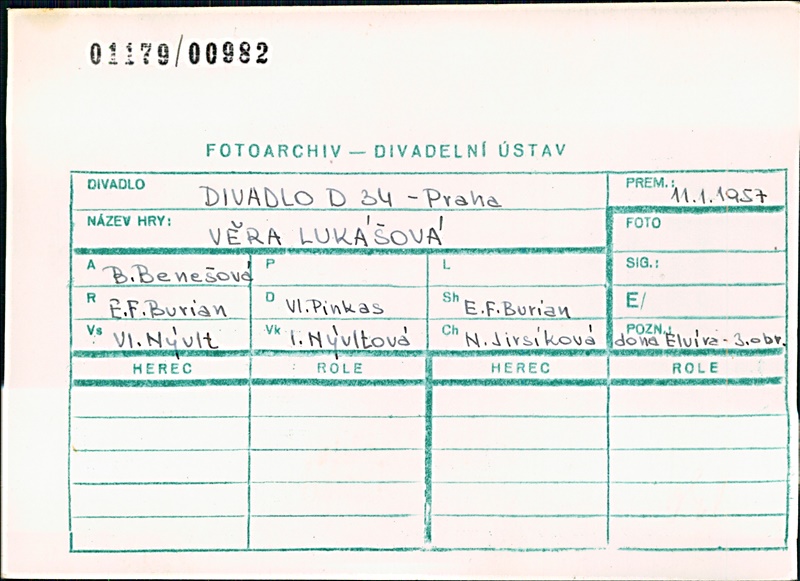 01179/00982
FOTOARCHIV — DIVADELNÍ ÚSTAV
DIVADLO DIVADLO D 34 - Praha PREM.: 11.1.1957
NÁZEV HRY: VĚRA LUKÁŠOVÁ FOTO
A B.Benešová P L SIG.:
R E.F.Burian D Vl.Pinkas Sh E.F.Burian E/
Vs Vl.Nývlt Vk I.Nývltová Ch N.Jirsíková POZN.: dona Elvíra - 3.obr.
HEREC ROLE HEREC ROLE